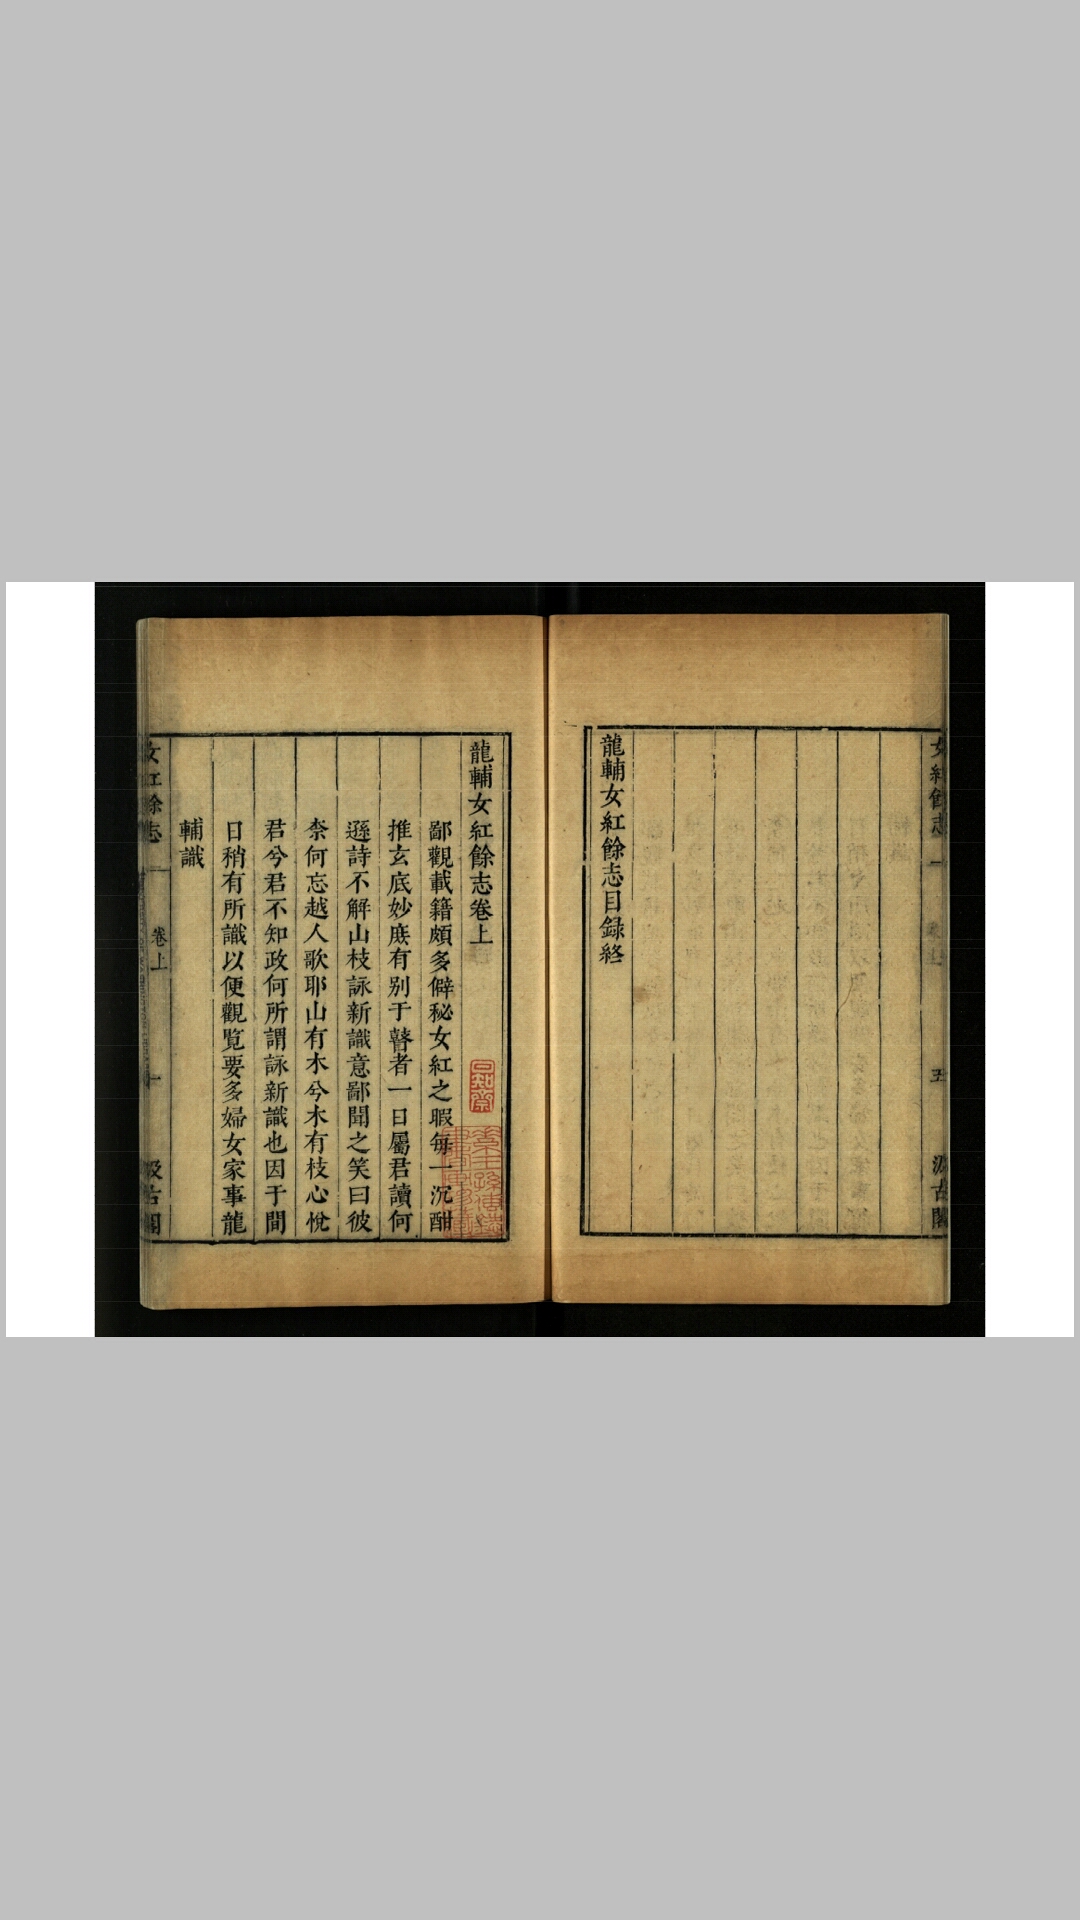 女紅餘志
五
汲古閣
龍輔女紅餘志目録終
龍輔女紅餘志卷上
鄙觀載籍頗多僻秘女紅之暇每一沉酣
推玄底妙庻有别于瞽者一日屬君讀何
遜詩不解山枝詠新識意鄙聞之笑曰彼
柰何忘越人歌耶山有木兮木有枝心悅
君兮君不知政何所謂詠新識也因于間
日稍有所識以便觀覧要多婦女家事龍
輔識
女紅餘志
卷上
一
汲古閣